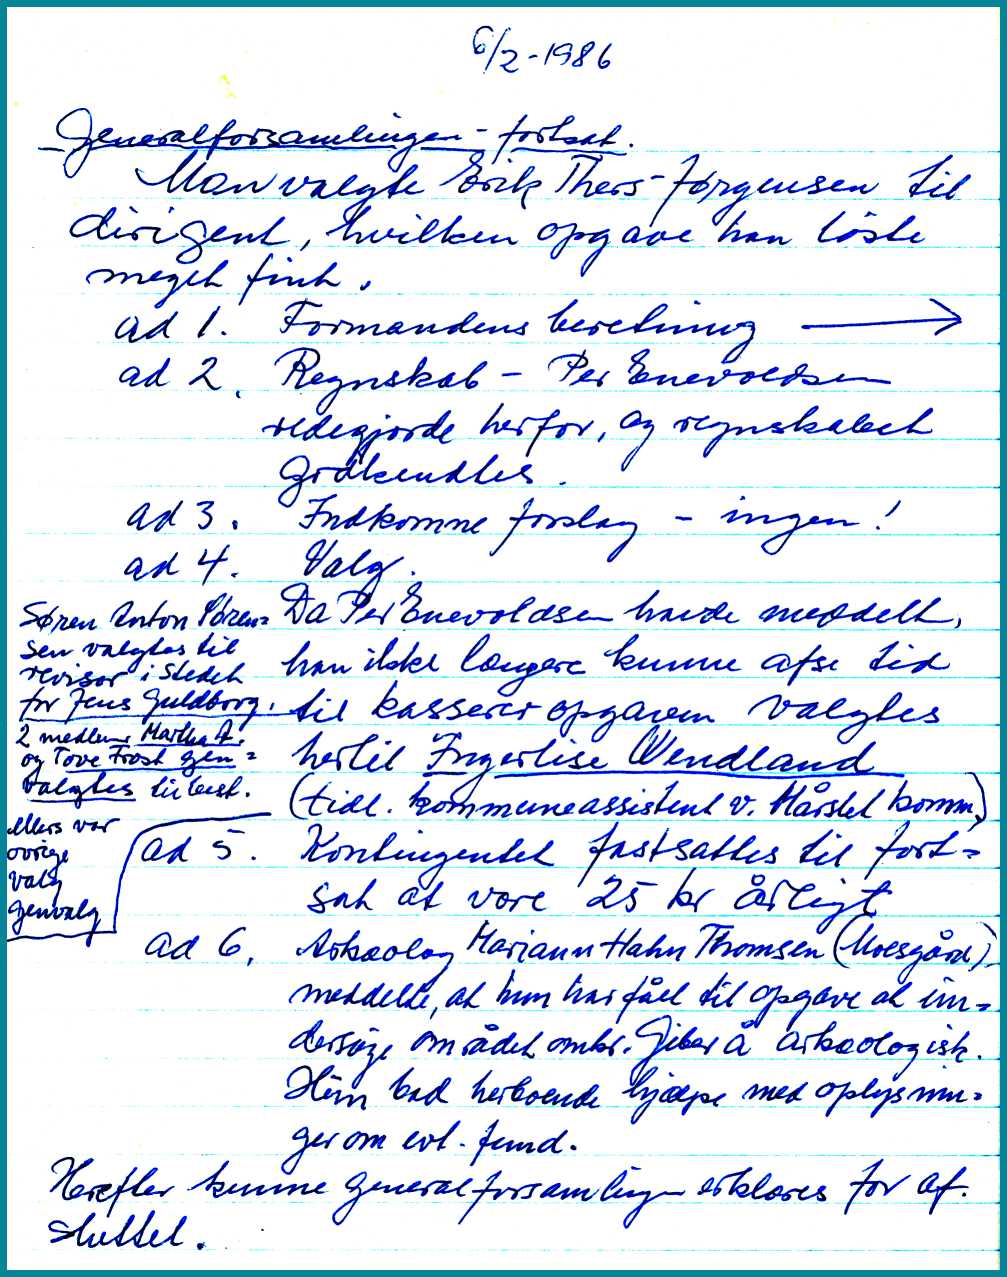 6/2-1986
Generalforsamlingen - fortsat.
Man valgte Erik Thers-Jørgensen til
dirigent, hvilken opgave han löste
meget fint.
ad 1. Formandens beretning →
ad 2. Regnskab - Per Enevoldsen
redegjorde herfor, og regnskabet
godkendtes.
ad 3. Indkomne forslag - ingen!
ad 4. Valg.
Da Per Enevoldsen havde meddelt,
han ikke længere kunne afse tid
til kassereropgaven valgtes
hertil Ingerlise Wendland
(tidl. kommuneassistent v. Mårslet komm.)
Søren Anton Sören=
sen valgtes til
revisor i stedet
for Jens Guldborg.
2 medlem. Martha A.
og Tove Frost gen=
valgtes til best.
Ellers var
övrige
valg
genvalg
ad 5. Kontingentet fastsattes til fort=
sat at være 25 kr årligt
ad 6. Arkæolog Mariann Hahn Thomsen (Moesgård)
meddelte, at hun har fået til opgave at un=
dersöge området omkr. Giber Å arkæologisk.
Hun bad herboende hjælpe med oplysnin=
ger om evt. fund.
Herefter kunne generalforsamlingen erklæres for af-
sluttet.